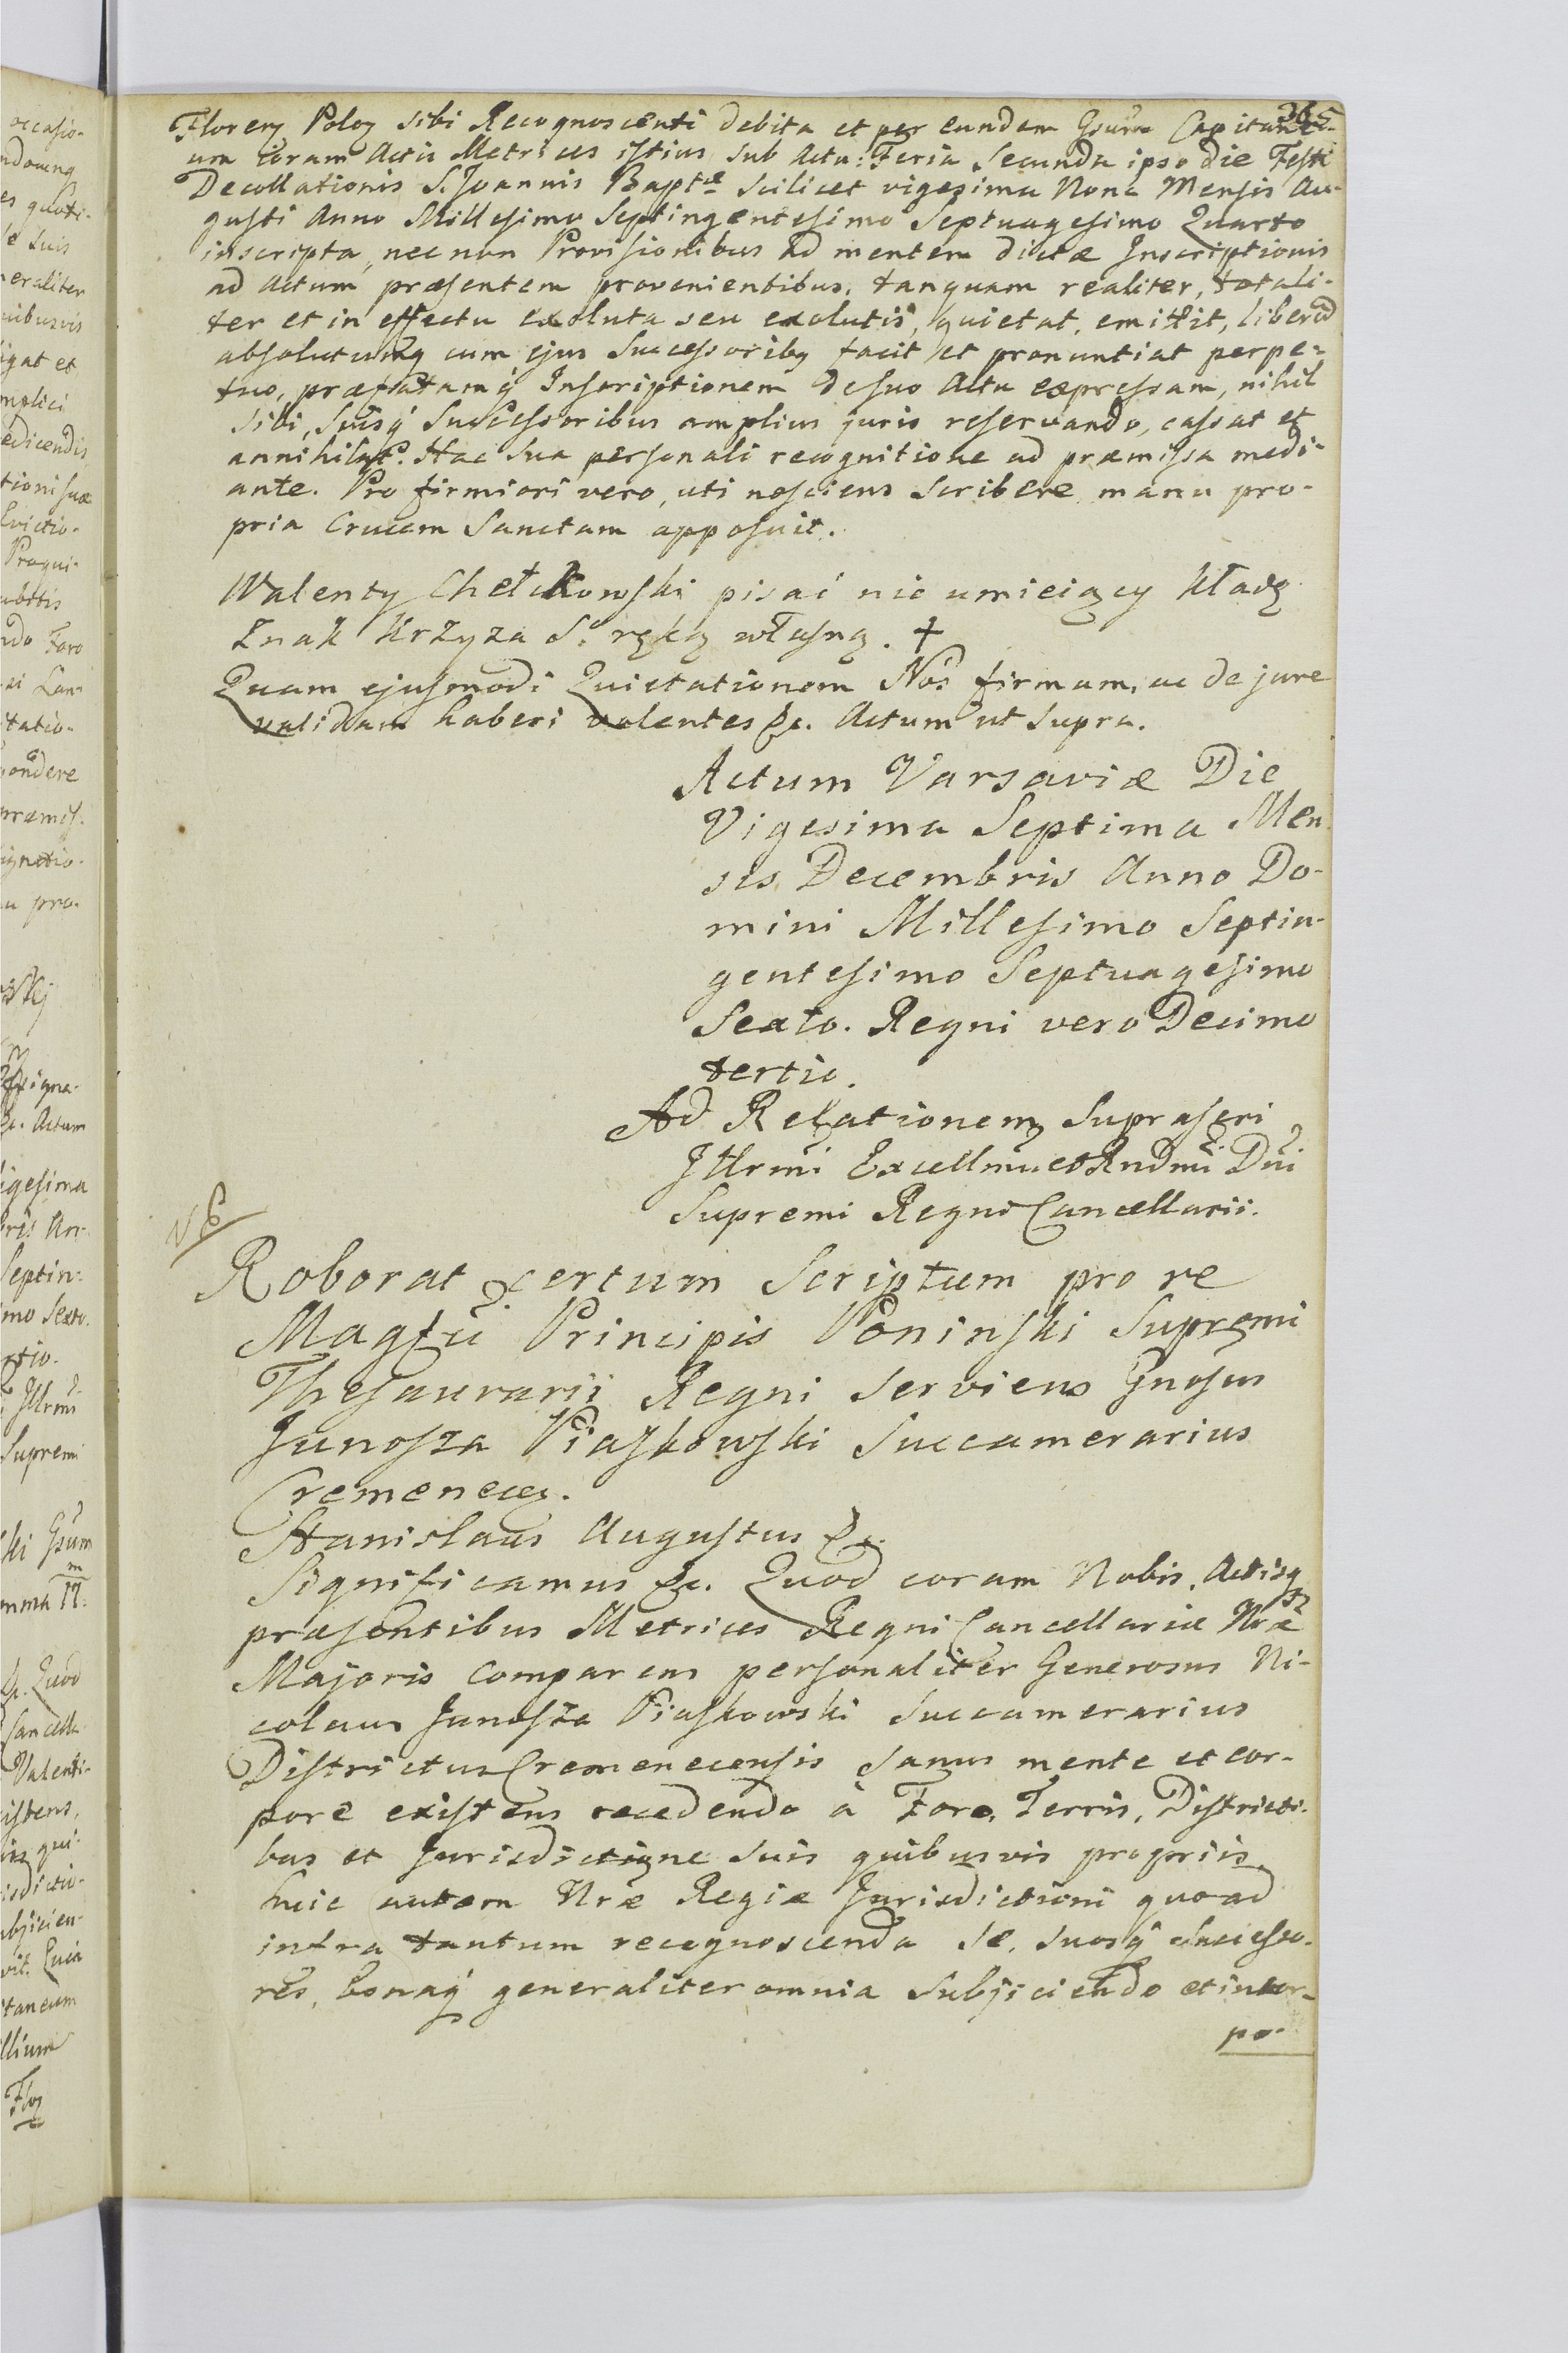 365
Florenj Polon sibi Recognoscenti debita et per eundem Gsum Capitane-
um coram Actis Metrices istius sub Actu: Feria Secunda ipso die Festi
Decollationis S. Joannis Baptæ scilicet vigesima Nona Mensis Au-
gusti Anno Millesimo Septingentesimo Septuagesimo Quarto
inscripta, nec non Provisionibus ad mentem dictæ Inscriptionis
ad Actum præsentem provenientibus, tanquam realiter, totali-
ter et in effectu exoluta seu exolutis, quietat, emittit, liberū
absolutumq cum ejus Successoribq facit et pronuntiat perpe-
tuo, præfatamq Inscriptionem de suo Actu expressam, nihil
sibi, suisq Successoribus amplius juris reservando, cassat et
annihilat. Hac sua personali recognitione ad præmissa medi-
ante. Pro firmiori vero, uti nesciens scribere manu pro-
pria Crucem Sanctam apposuit.
Walenty Chełckowski pisać nie umieiący kładę
Znak Krzyza S. ręką własną. +
Quam ejusmodi Quietationem Nos firmam, ac de jure
validam haberi volentes &c. Actum ut supra.
Actum Varsaviæ Die
Vigesima Septima Men
sis Decembris Anno Do-
mini Millesimo Septin-
gentesimo Septuagesimo
Sexto. Regni vero Decimo
tertio.
Ad Relationem suprascri
Jllrmi Excellmi et Rndmi Dni
Supremi Regni Cancellarii.
NB
Roborat certum Scriptum pro re
Magfci Principis Poninski Supremi
Thesaurarii Regni serviens Gnosus
Junosza Piaskowski Succamerarius
Cremenecen.
Stanislaus Augustus &c.
Significamus &c. Quod coram Nobis, Actisq
præsentibus Metrices Regni Cancellariæ Nræ
Majoris comparens personaliter Generosus Ni-
colaus Junosza Piaskowski Succamerarius
Districtus Cremenecensis sanus mente et cor-
pore existens recedendo à Foro, Terris, Districti-
bus et Jurisdictione suis quibusvis propriis
huic autem Nræ Regiæ Jurisdictioni quoad
infra tantum recognoscenda se, suosq Successo-
res, bonaq generaliter omnia subjiciendo et incor-
po-